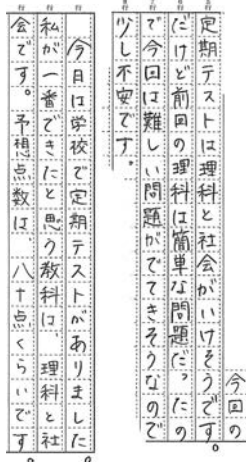 今回の
定期テストは理科と社会がいけそうです。
だけど前回の理科は簡単な問題だったの
で今回は難しい問題がでてきそうなので
少し不安です。
今日は学校で定期テストがありました。
私が一番できたと思う教科は、理科と社
会です。予想点数は、八十点くらいです。